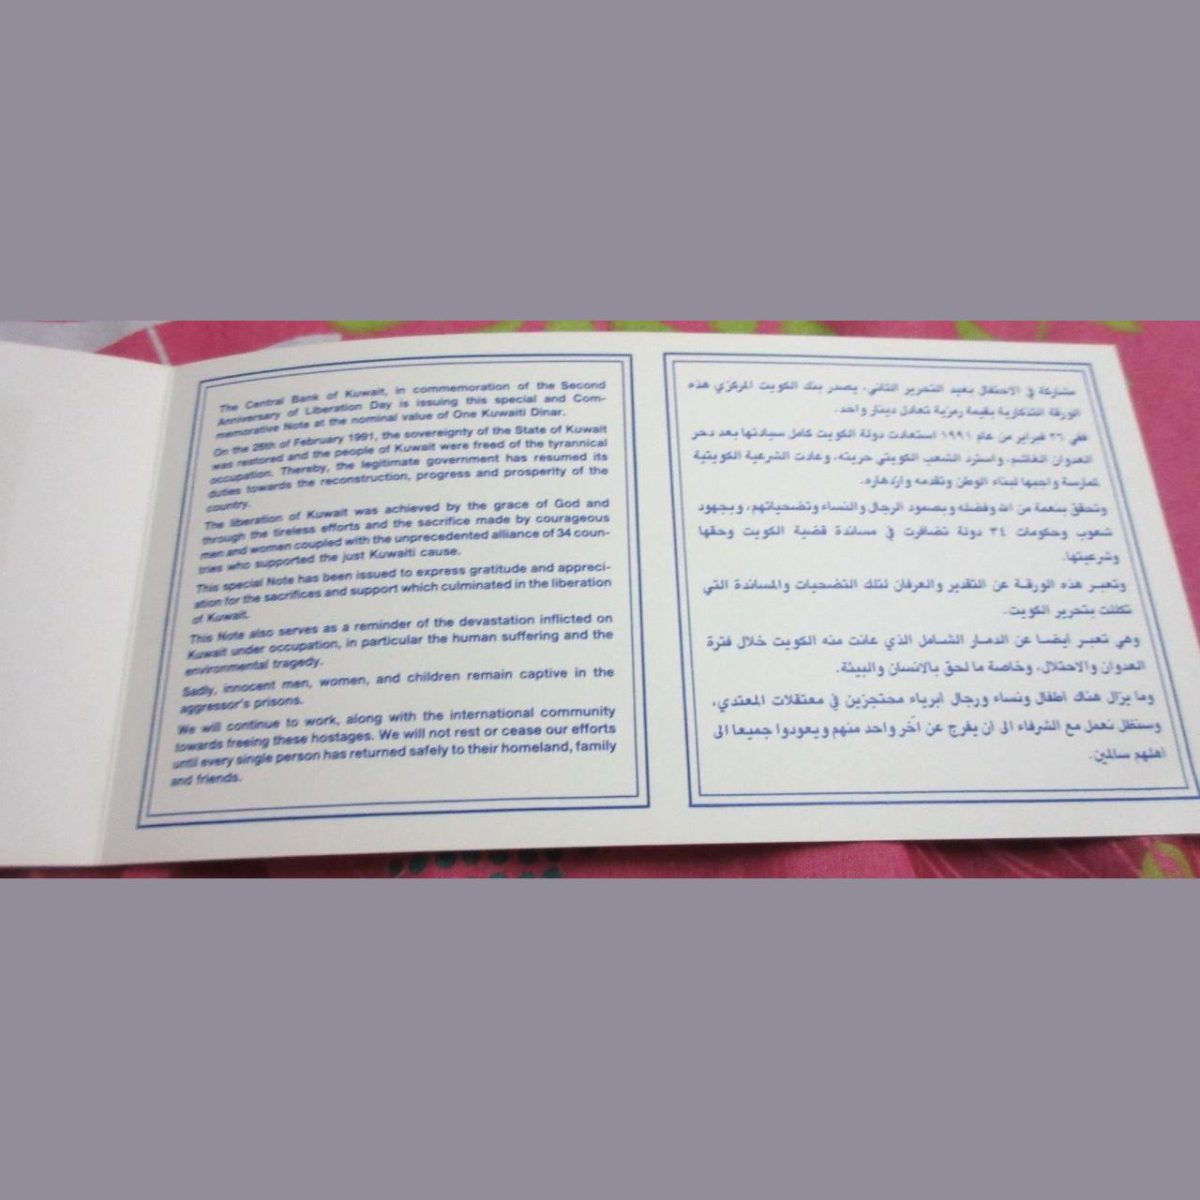 The Central Bank of Kuwait, in commemoration of the Second
Anniversary of Liberation Day is issuing this special and Com-
memorative Note at the nominal value of One Kuwaiti Dinar.
On the 26th of February 1991, the sovereignty of the State of Kuwait
was restored and the people of Kuwait were freed of the tyrannical
occupation. Thereby, the legitimate government has resumed its
duties towards the reconstruction, progress and prosperity of the
country.
The liberation of Kuwait was achieved by the grace of God and
through the tireless efforts and the sacrifice made by courageous
men and women coupled with the unprecedented alliance of 34 coun-
tries who supported the just Kuwaiti cause.
This special Note has been issued to express gratitude and appreci-
ation for the sacrifices and support which culminated in the liberation
of Kuwait.
This Note also serves as a reminder of the devastation inflicted on
Kuwait under occupation, in particular the human suffering and the
environmental tragedy.
Sadly, innocent men, women, and children remain captive in the
aggressor's prisons.
We will continue to work, along with the international community
towards freeing these hostages. We will not rest or cease our efforts
until every single person has returned safely to their homeland, family
and friends.
مشاركة في الاحتفال بعيد التحرير الثاني، يصدر بنك الكويت المركزي هذه
الورقة التذكارية بقيمة رمزية تعادل دينار واحد.
ففي ٢٦ فبراير من عام ١٩٩١ استعادت دولة الكويت كامل سيادتها بعد دحر
العدوان الغاشم، واسترد الشعب الكويتي حريته، وعادت الشرعية الكويتية
لممارسة واجبها لبناء الوطن وتقدمه وازدهاره.
وتحقق بنعمة من الله وفضله وبصمود الرجال والنساء وتضحياتهم، وبجهود
شعوب وحكومات ٣٤ دولة تضافرت في مساندة قضية الكويت وحقها
وشرعيتها.
وتعبر هذه الورقة عن التقدير والعرفان لتلك التضحيات والمساندة التي
تكللت بتحرير الكويت.
وهي تعبر ايضا عن الدمار الشامل الذي عانت منه الكويت خلال فترة
العدوان والاحتلال، وخاصة ما لحق بالانسان والبيئة.
وما يزال هناك اطفال ونساء ورجال ابرياء محتجزين في معتقلات المعتدي،
وسنظل نعمل مع الشرفاء الى ان يفرج عن آخر واحد منهم ويعودوا جميعا الى
اهلهم سالمين.